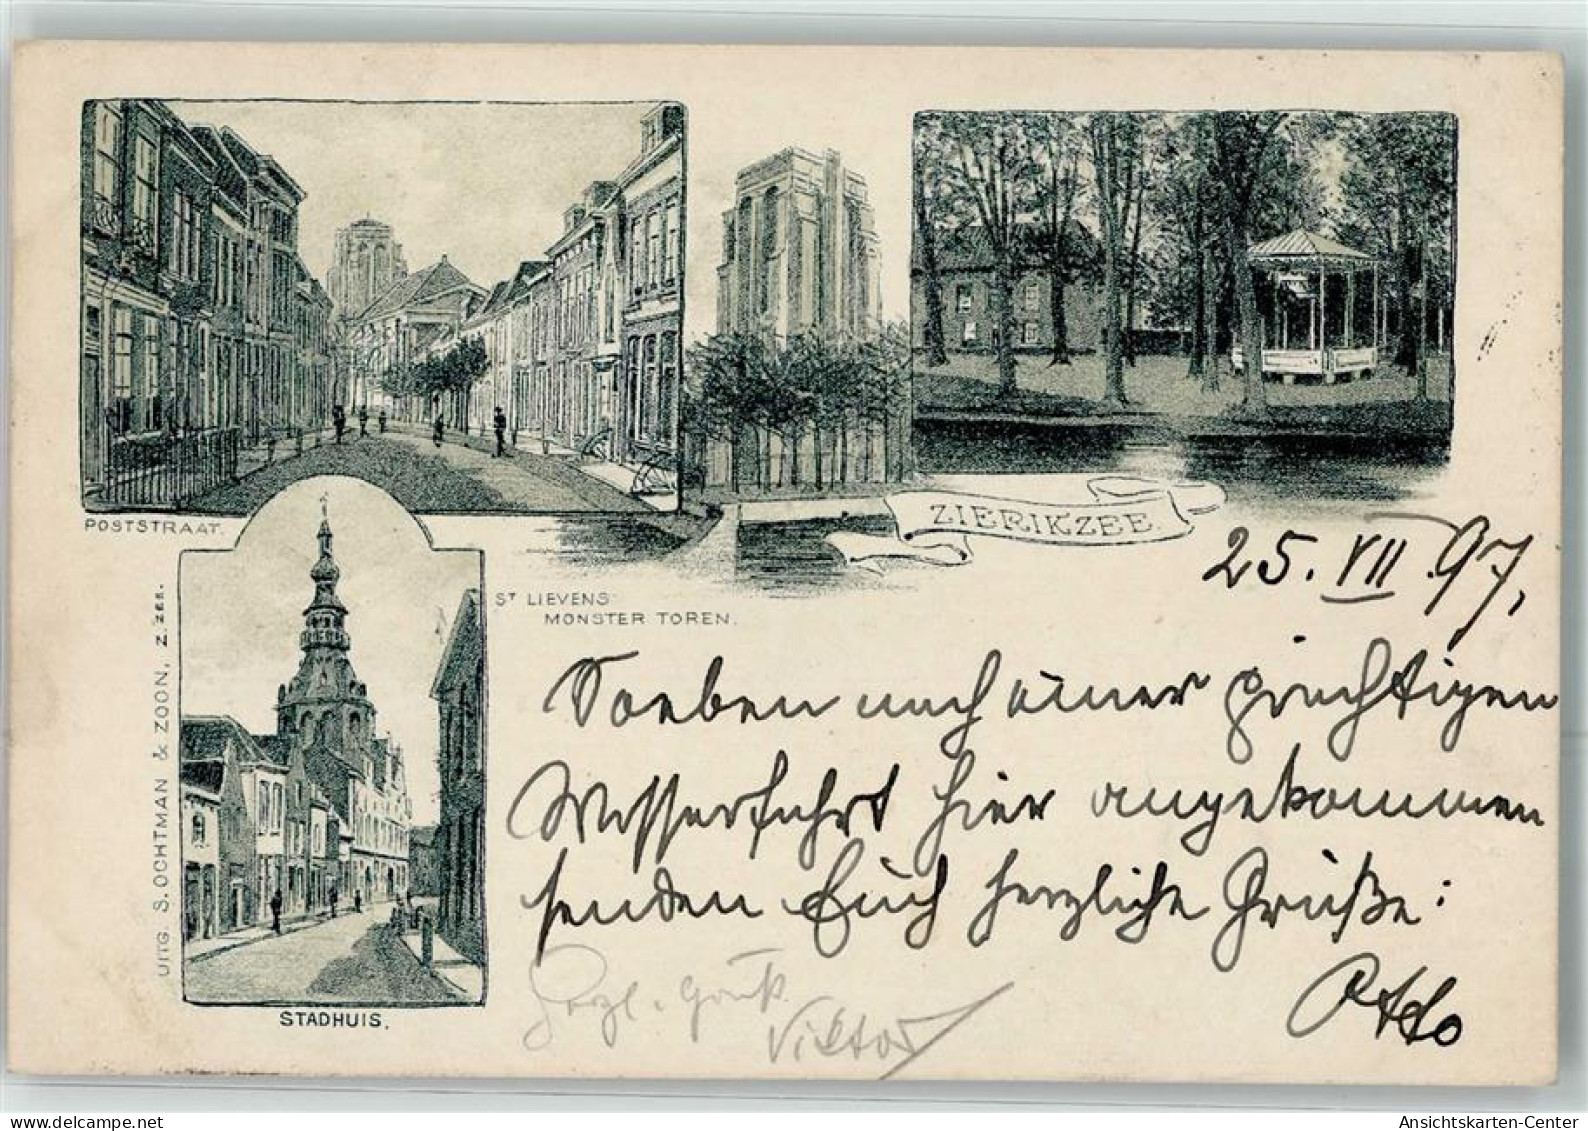 POSTSTRAAT.
ST LIEVENS
MONSTER TOREN.
ZIERIKZEE.
UITG. S. OCHTMAN & ZOON, Z.ZEE.
STADHUIS.
25. VII 97,
Soeben nach einer prächtigen
Wasserfahrt hier angekommen
senden Euch herzliche Grüße:
Otto
Herzl. Gruß
Viktor
Ansichtskarten-Center